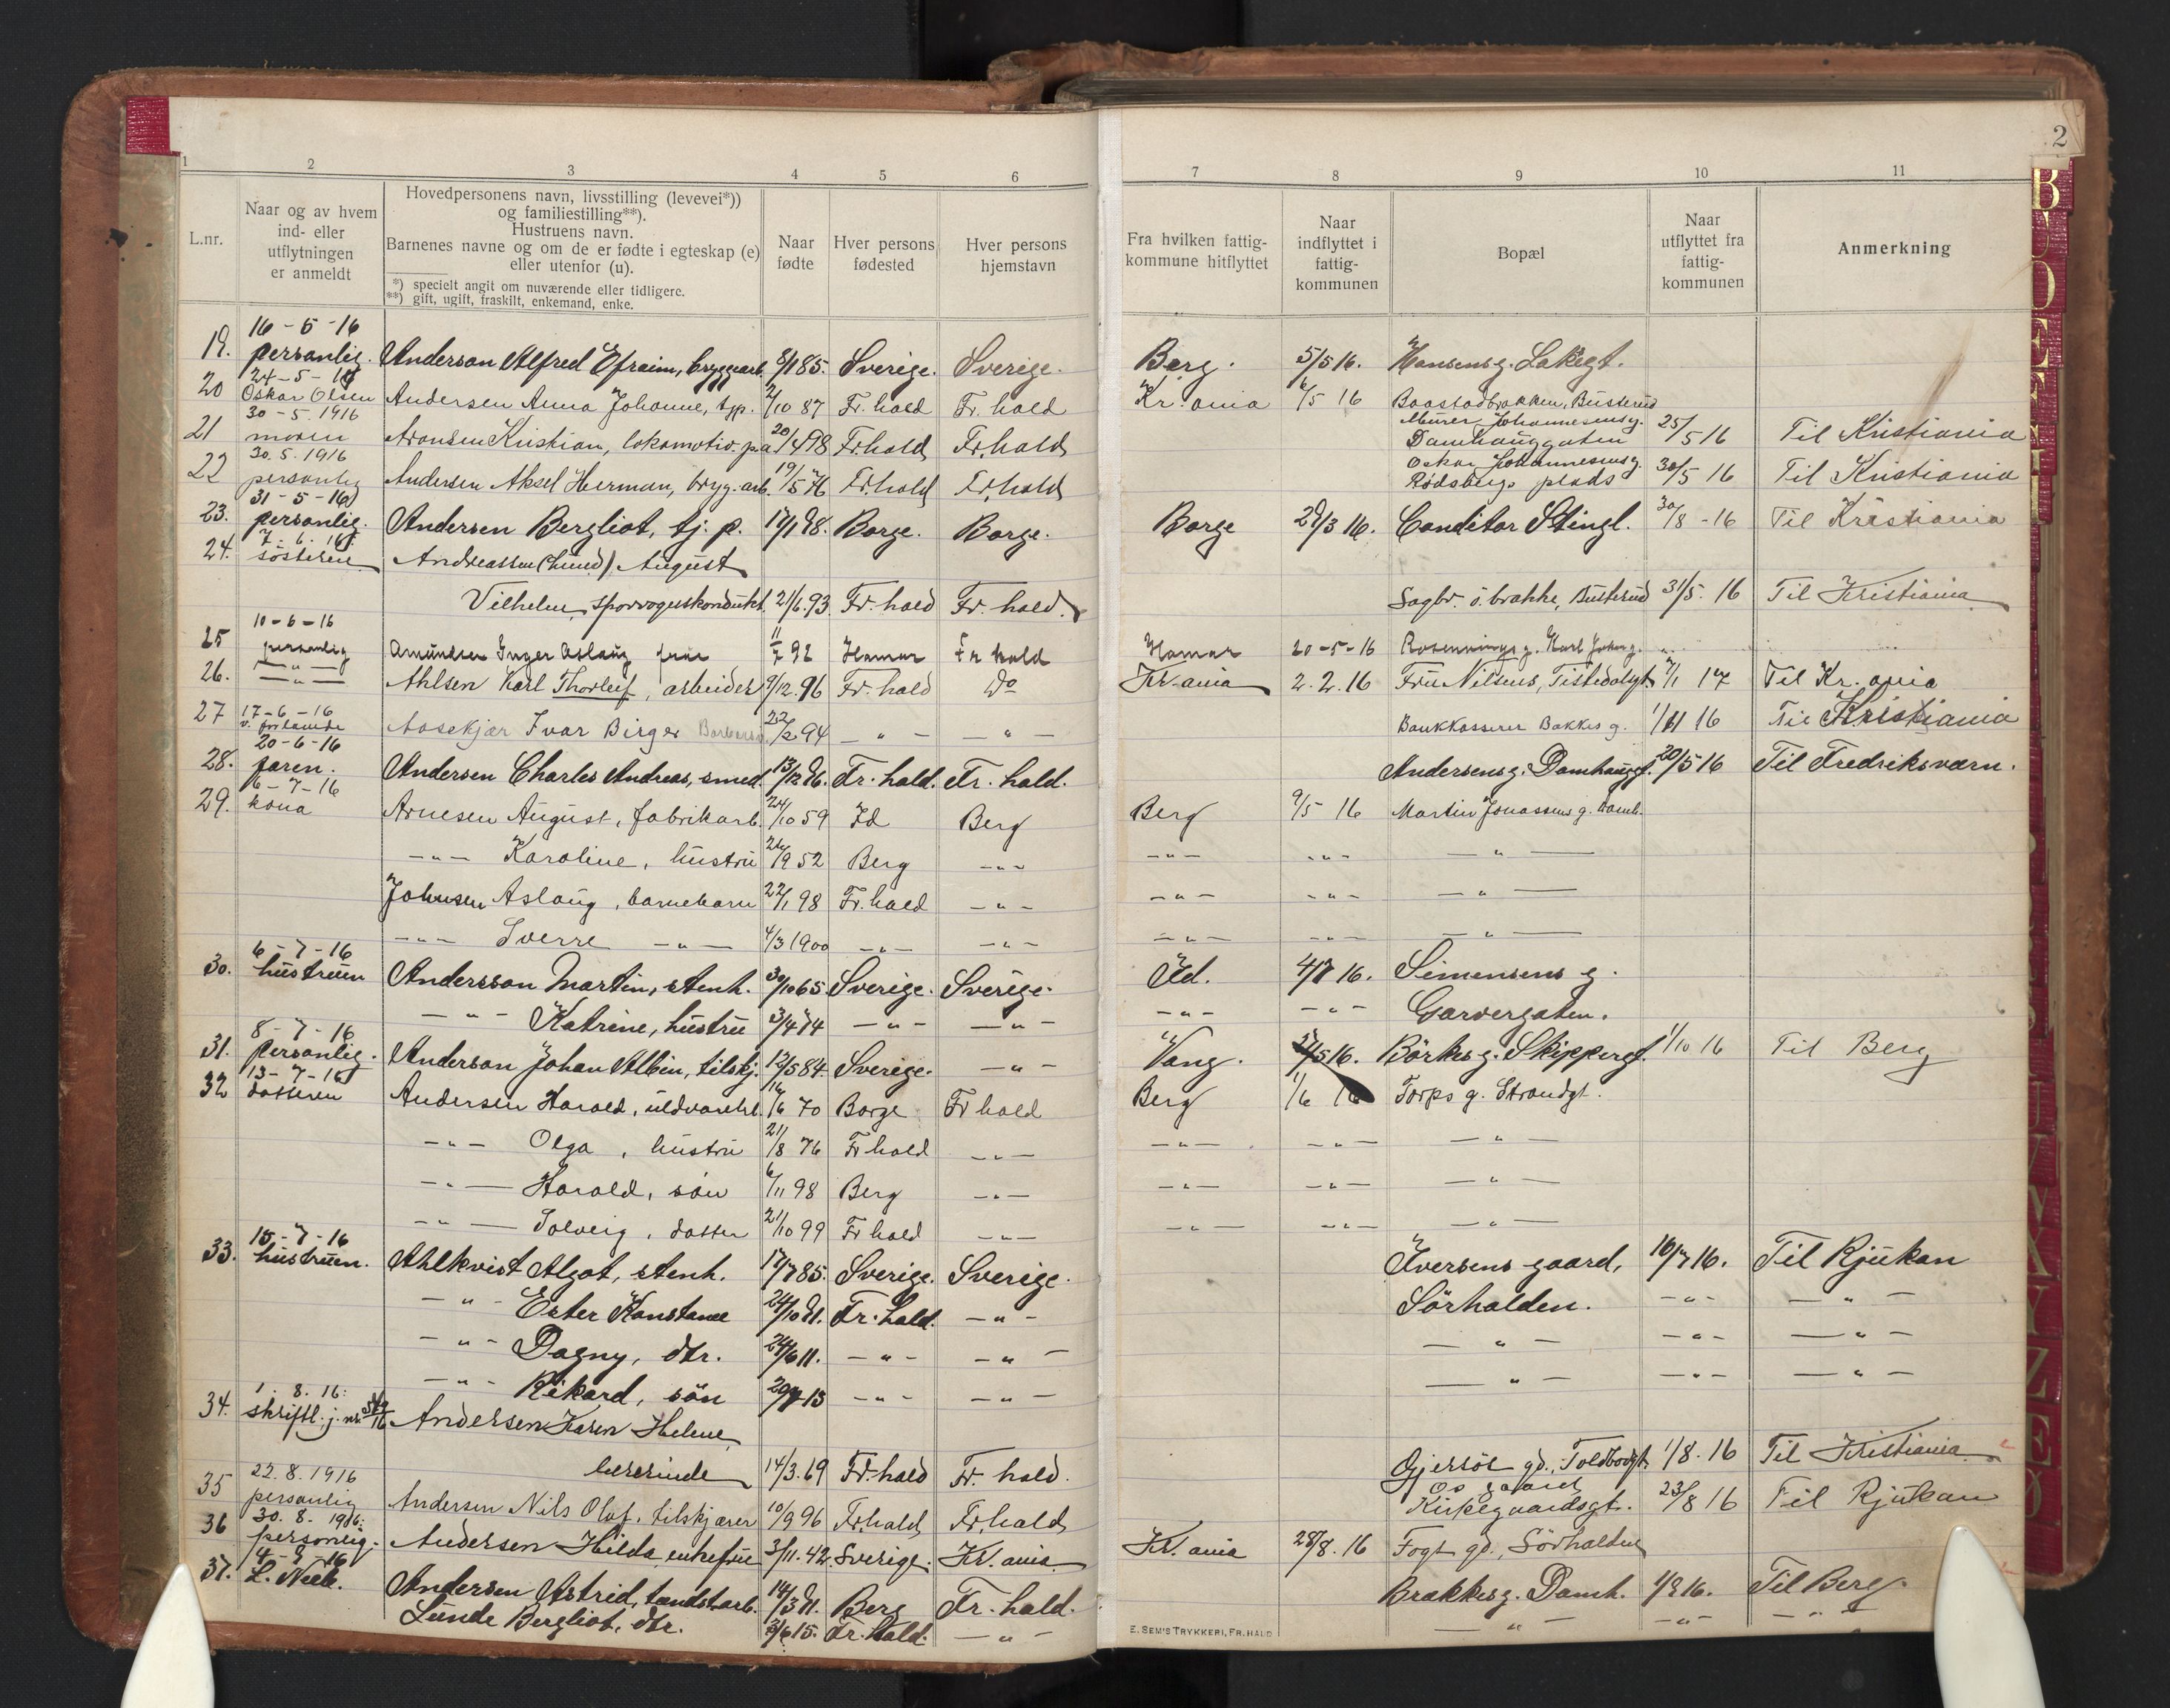 2
1 2 3 4 5 6 7 8 9 10 11
L.nr.
Naar og av hvem
ind- eller
utflytningen
er anmeldt
Hovedpersonens navn, livsstilling (levevei*))
og familiestilling**).
Hustruens navn.
Barnenes navne og om de er fødte i egteskap (e)
eller utenfor (u).
*) specielt angit om nuværende eller tidligere.
**) gift, ugift, fraskilt, enkemand, enke.
Naar
fødte
Hver persons
fødested
Hver persons
hjemstavn
Fra hvilken fattig-
kommune hitflyttet
Naar
indflyttet i
fattig-
kommunen
Bopæl
Naar
utflyttet fra
fattig-
kommunen
Anmerkning
16-5-16
19. personlig. Anderson Alfred Efraim, bryggearb. 8/1 85. Sverige. Sverige. Berg. 5/5 16. Hansensg. Lakegt.
24-5-16
20 Oskar Olsen Andersen Anna Johanne, tjp. 2/10 87 Fr.hald Fr.hald Kr.ania 6/5 16 Baastadbrakken, Busterud
30-5.1916 Murer Johannesensg.
21 moren Aronsen Kristian, lokomotiv.pa 20/4 98 Fr.hald Fr.hald Damhauggaten 25/5 16 Til Kristiania
30.5.1916 Oskar Johannesensg.
22 personlig Andersen Aksel Herman, bryg.arb. 19/5 76 Fr.hald Fr.hald Rødsbergs plads 30/5 16 Til Kristiania
31-5-16
23. personlig. Andersen Bergliot, tj.p. 17/1 98. Borge. Borge. Borge 29/3 16. Conditor Stingl. 30/8-16 Til Kristiania
7.6.16
24. søsteren Andreassen (Lund) August
Vilhelm, sporvognskondukt. 21/6.93 Fr.hald Fr.hald. Sagbr. ö. brakke, Busterud 31/5.16 Til Kristiania
10-6-16
25 personlig Amundsen Inger Aslaug frue 11/7 92 Hamar Fr hald Hamar 20-5-16 Rosenningsg. Karl Johansg.
26. —"— Ahlsen Karl Thorleif, arbeider 9/12.96 Fr.hald Do Kr.ania 2.2.16 Fru Nilsens, Tistedalsgt. 7/1 17 Til Kr.ania
17-6-16
27 v. forlovede Aasekjær Ivar Birger 22/2 94 —"— —"— Bankkasserer Bakkes g. 1/11 16 Til Kristiania
20-6-16
28. faren. Andersen Charles Andreas, smed. 13/12 96. Fr.hald. Fr.hald. Andersensg. Damhauggt. 20/5 16 Til Fredriksværn.
6-7-16
29. kona Arnesen August, fabrikarb. 24/10 59 Id Berg Berg 9/5 16 Martin Jonassens g. Damh.
—"— Karoline, hustru 24/9 52 Berg —"— —"— —"— —"—
Johnsen Aslaug, barnebarn 22/1 98 Fr.hald —"— —"— —"— —"—
—"— Sverre —"— 4/3 1900 —"— —"— —"— —"— —"—
6-7-16
30. hustruen Andersson Martin, stenh. 30/10 65 Sverige. Sverige. Id. 4/7 16. Simensens g.
—"— Katrine, hustru 3/4 74 —"— —"— —"— —"— Garvergaten.
8-7-16
31. personlig. Anderson Johan Albin, tilskj. 12/5 84. Sverige. —"— Vang. 5 16. Börkes g. Skippergt. 1/10 16 Til Berg
13-7-16
32 datteren Andersen Harald, uldvarehl. 16/6 70 Borge Fr hald Berg 1/6 16 Torps g. Strandgt.
—"— Olga, hustru 21/8 76 Fr hald —"— —"— —"— —"—
—"— Harald, søn 6/11 98 Berg —"— —"— —"— —"—
—"— Solveig, datter 21/10 99 Fr hald —"— —"— —"— —"—
15-7-16
33. hustruen. Ahlkvist Algot, stenh. 17/7 85. Sverige. Sverige. Iversens gaard, 16/7 16. Til Rjukan
—"— Ester Konstance 24/10 91. Fr.hald. —"— Sörhalden. —"— —"—
—"— Dagny, dtr. 24/6 11. —"— —"— —"— —"— —"—
—"— Rikard, sön 29/7 13 —"— —"— —"— —"— —"—
1.8.16.
34. skriftl. j. nr. Andersen Karen Helene,
lærerinde 14/3.69 Fr.hald Fr.hald. Gjersös gd., Toldbodgt. 1/8.16 Til Kristiania
22.8.1916 Os gaard
35 personlig Andersen Nils Olaf, tilskjærer 10/9 96 Fr.hald Fr.hald Kirkegaardsgt. 23/8 16 Til Rjukan
30.8.1916.
36 personlig. Andersen Hilda enkefrue 3/11.42. Sverige. Kr.ania Kr.ania 28/8.16 Fogt gd., Sörhalden
4-9-16
37. L. Nicb. Andersen Astrid, tændst.arb. 14/3 91. Berg Fr.hald. Brakkesg. Damh. 1/9 16. Til Berg.
Lunde Bergliot, dtr. 3/6 15. Fr.hald. —"— —"— —"— —"—
E. SEM'S TRYKKERI, FR.HALD